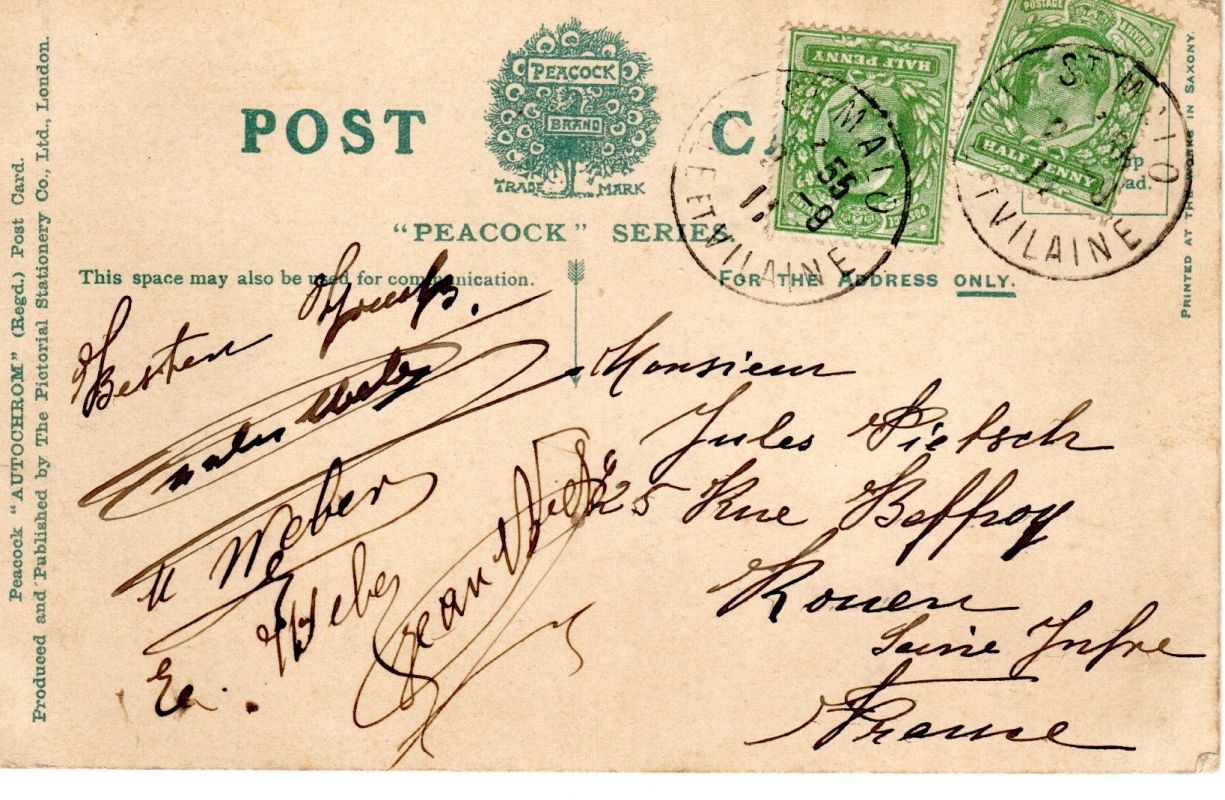 POST CA
PEACOCK
BRAND
TRADE MARK
"PEACOCK" SERIES
This space may also be used for communication.
FOR THE ADDRESS ONLY.
Peacock "AUTOCHROM" (Regd.) Post Card.
Produced and Published by The Pictorial Stationery Co., Ltd., London.
PRINTED AT THE WORKS IN SAXONY.
HALF PENNY
POSTAGE
HALF PENNY
ST MALO
ET VILAINE
ST M LO
ET VILAINE
Besten
Weber
Weber
Jean
Monsieur
Jules Pietsch
25 Rue Beffroy
Rouen
Seine Infre
France